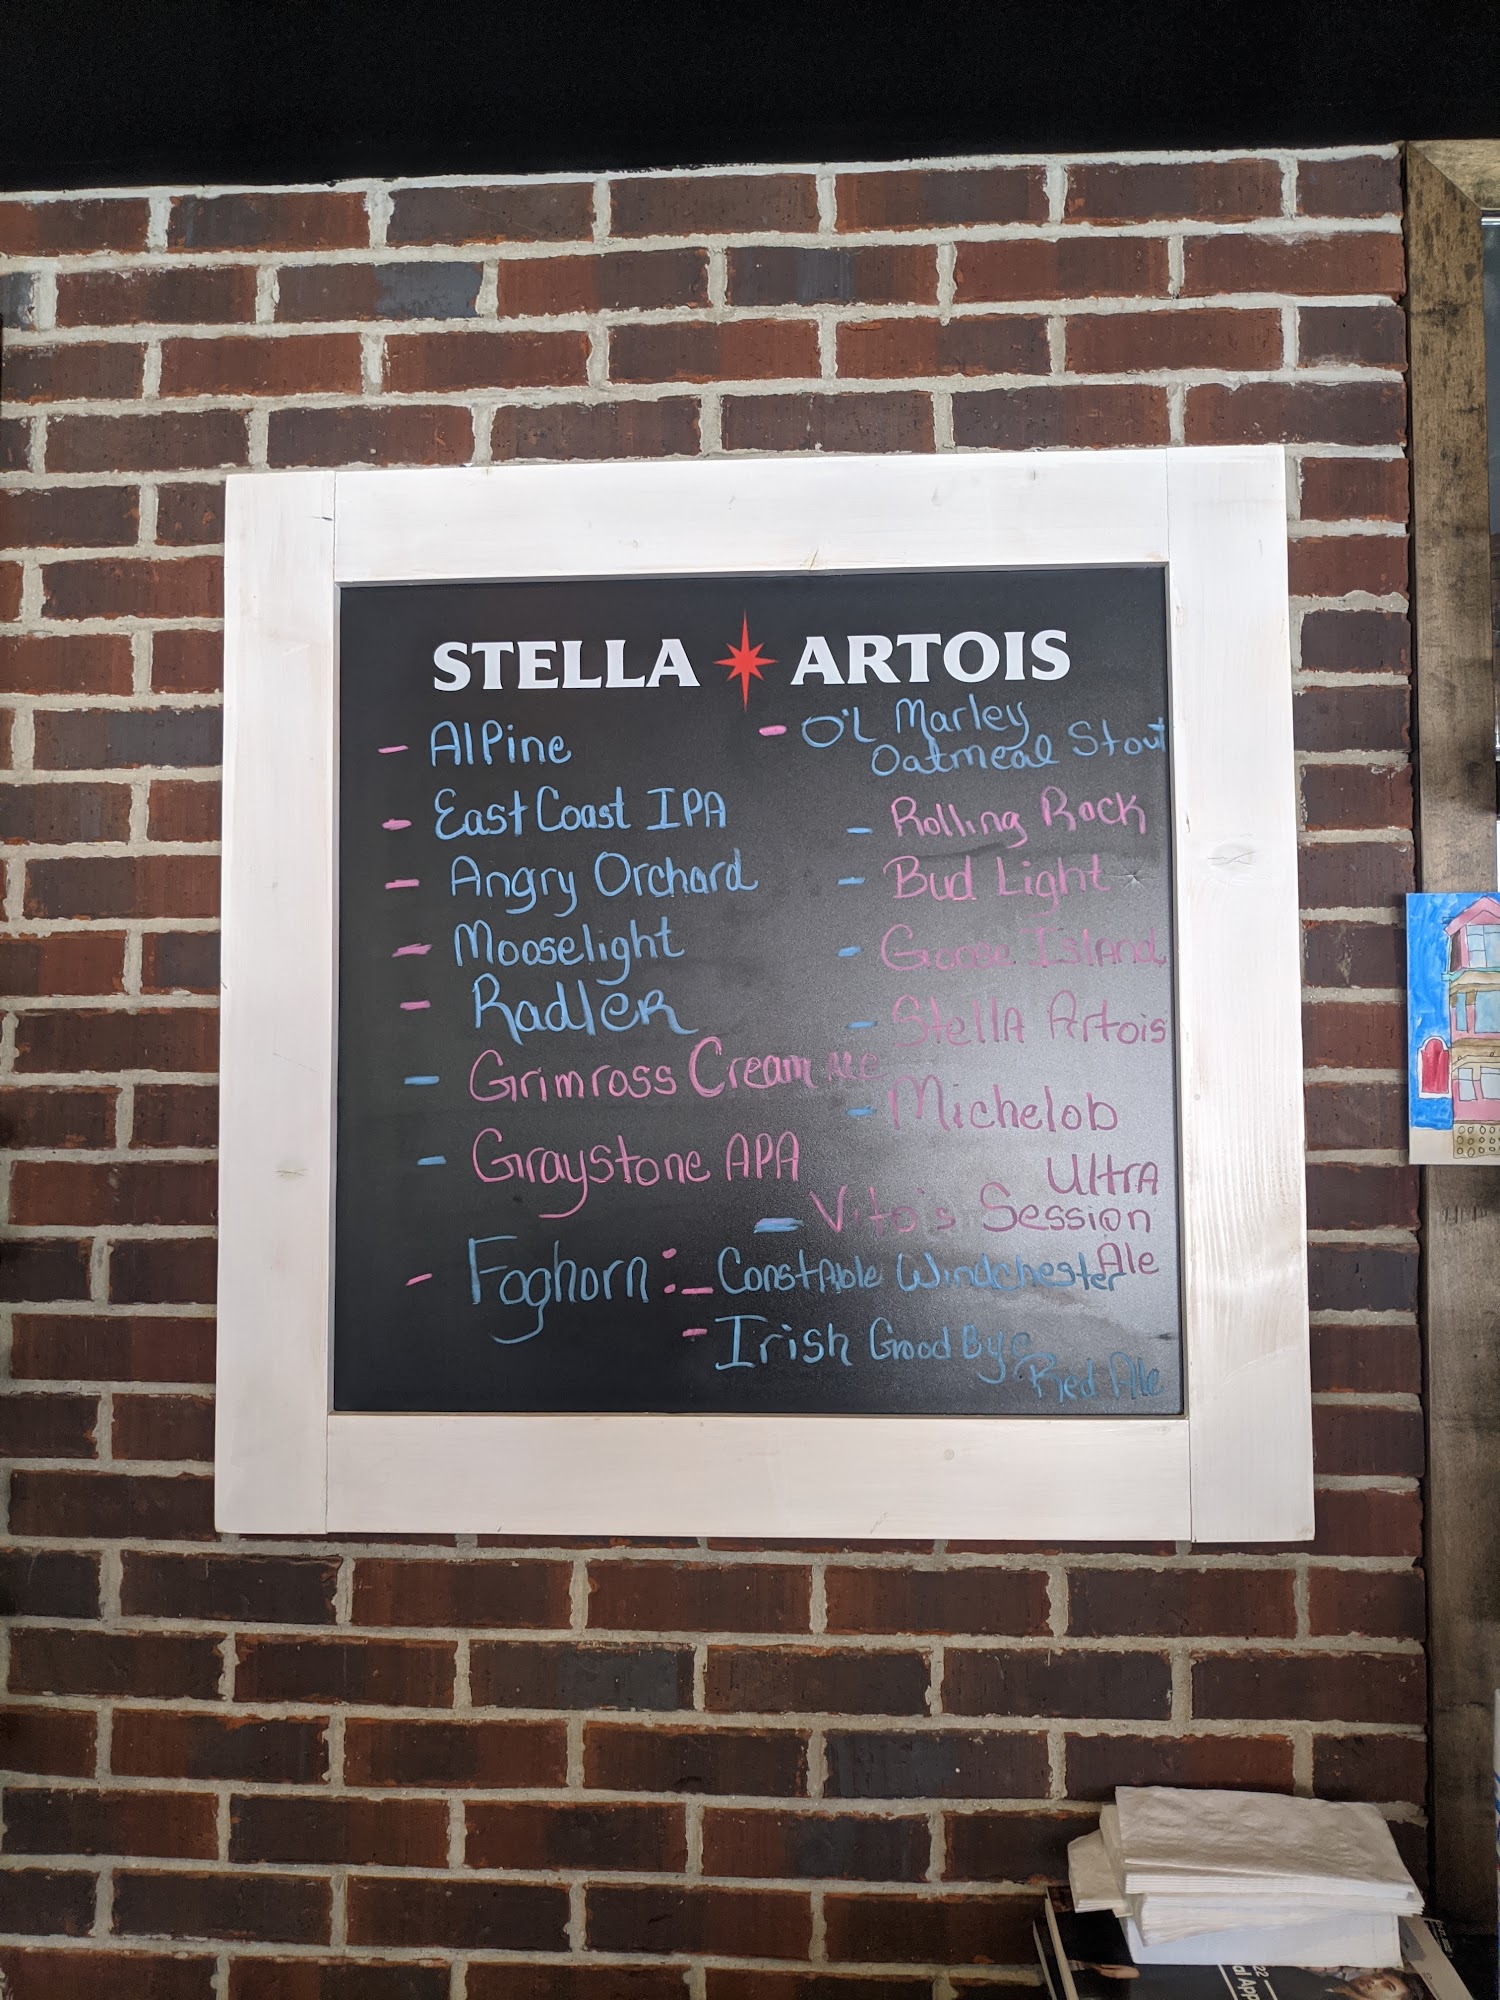 STELLA ARTOIS
- Alpine
- East Coast IPA
- Angry Orchard
- Mooselight
- Radler
- Grimross Cream Ale
- Graystone APA
- Foghorn:
- Constable Windchester
- Irish Good Bye
Red Ale
- O'L Marley
Oatmeal Stout
- Rolling Rock
- Bud Light
- Goose Island
- Stella Artois
- Michelob
Ultra
- Vito's Session
Ale